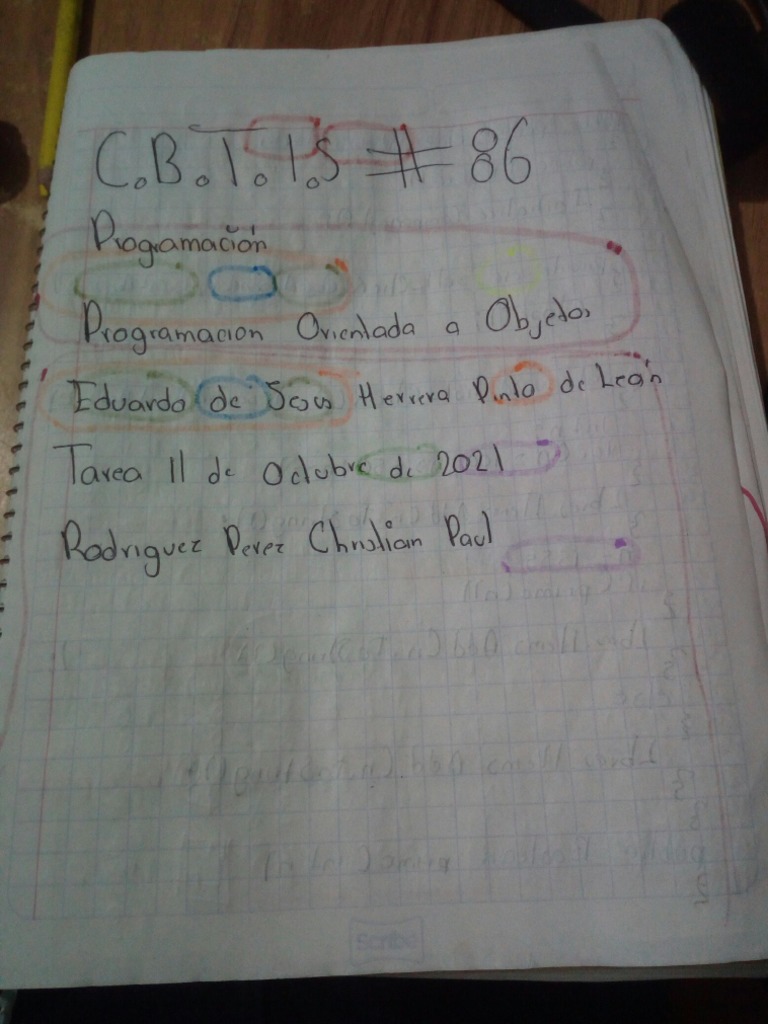 C.B.T.I.S # 86
Programación
Programacion Orientada a Objetos
Eduardo de Jesus Herrera Pinto de León
Tarea 11 de Octubre de 2021
Rodriguez Perez Christian Paul
Scribe